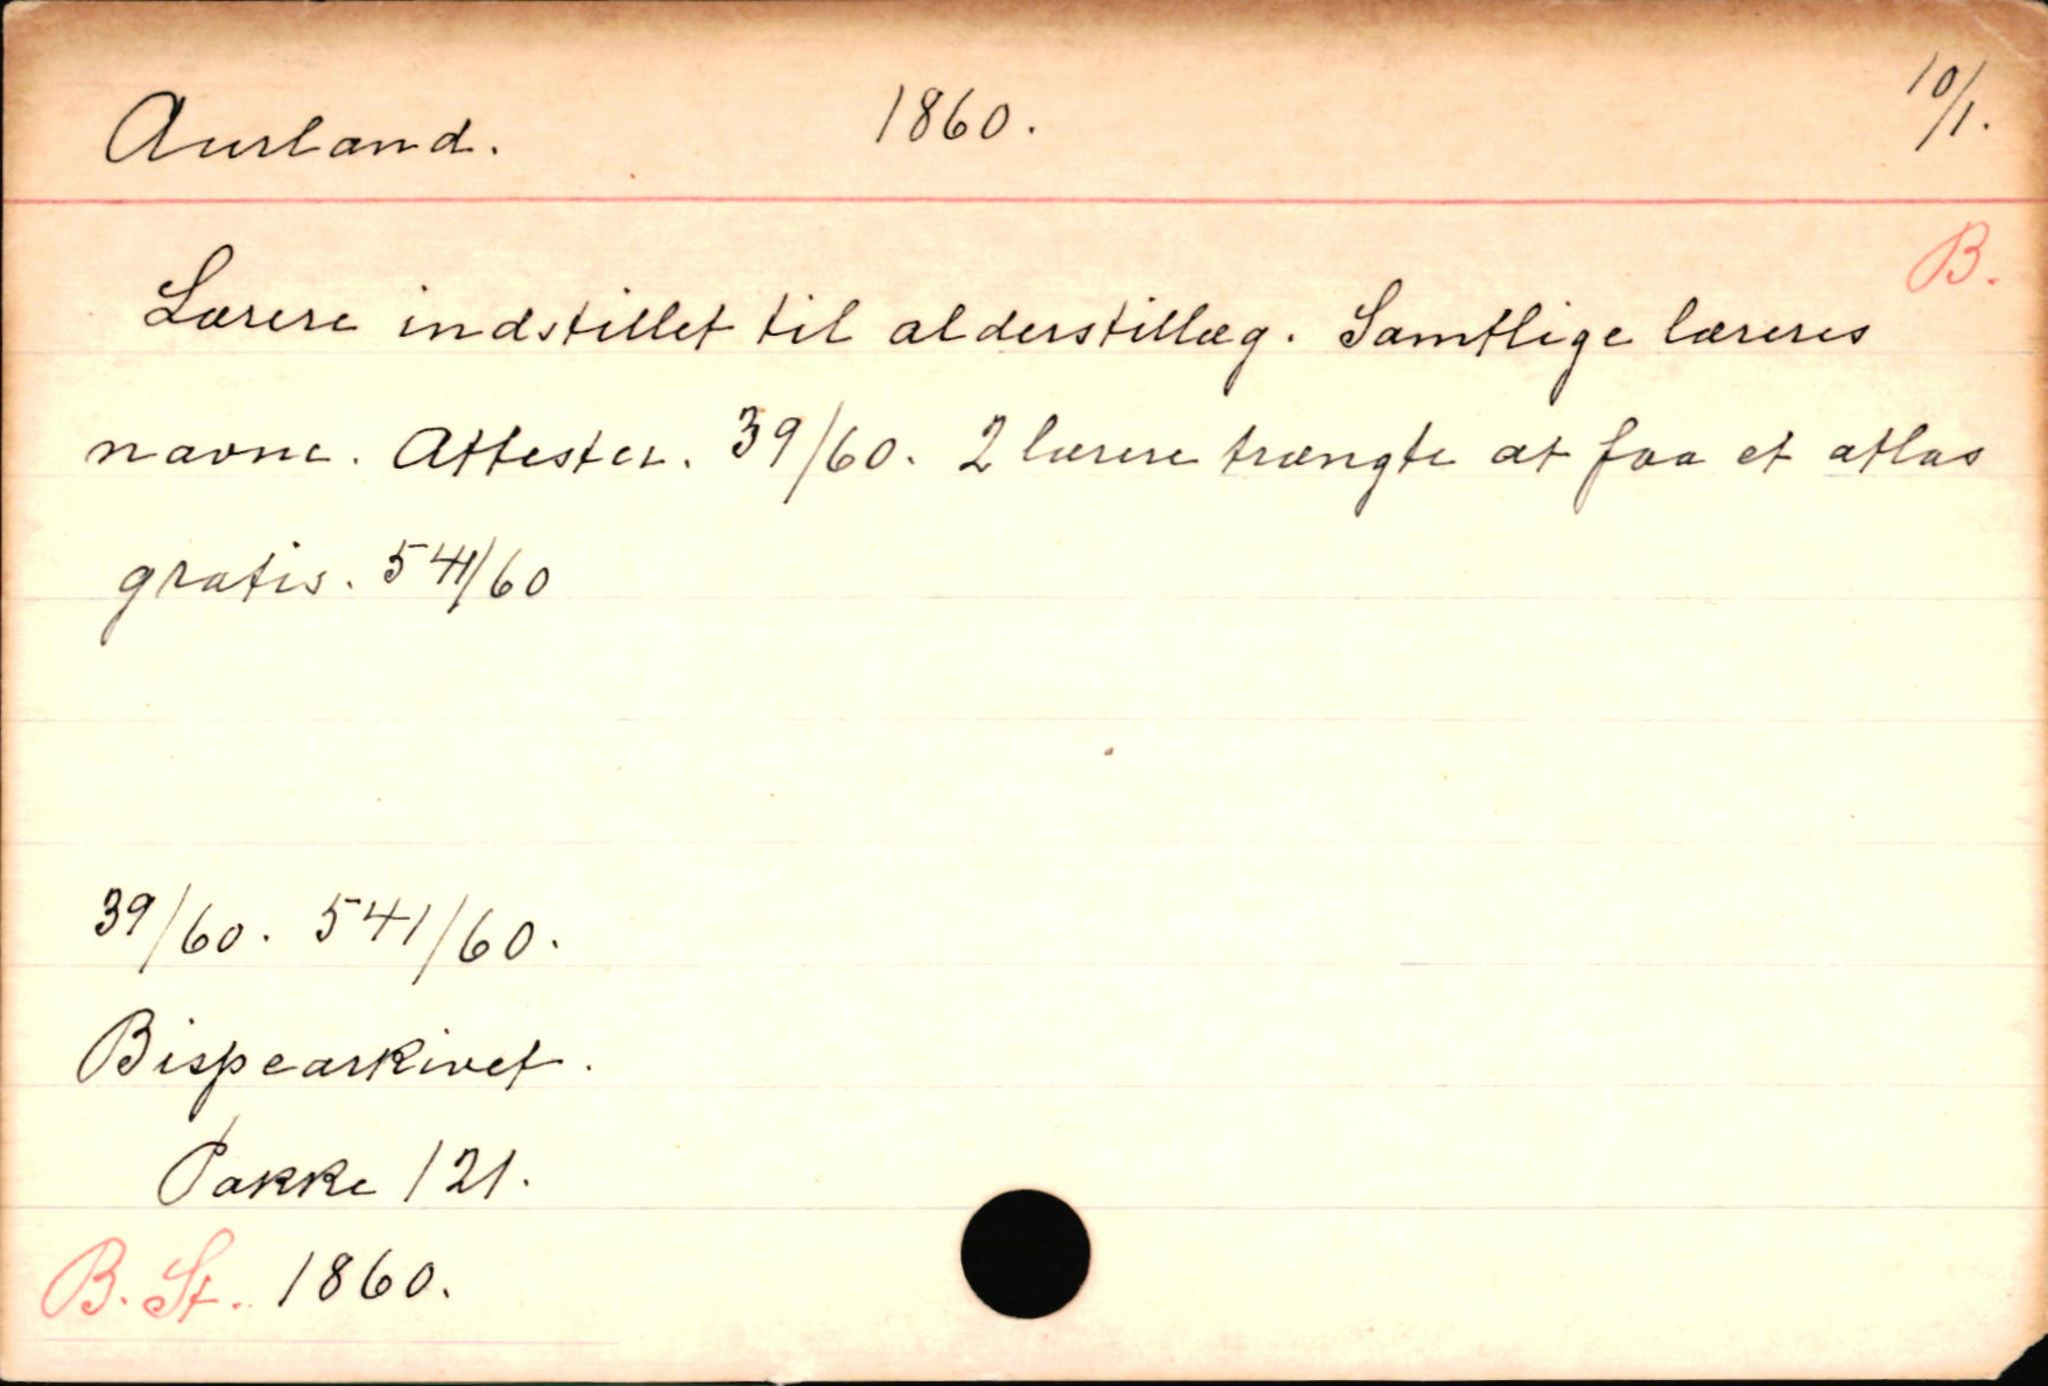 Aurland. 1860. 10/1.
B.
Lærere indstillet til alderstillæg. Samtlige læreres
navne. Attester. 39/60. 2 lærere trængte at faa et atlas
gratis. 541/60
39/60. 541/60.
Bispearkivet.
Pakke 121.
B. St. 1860.